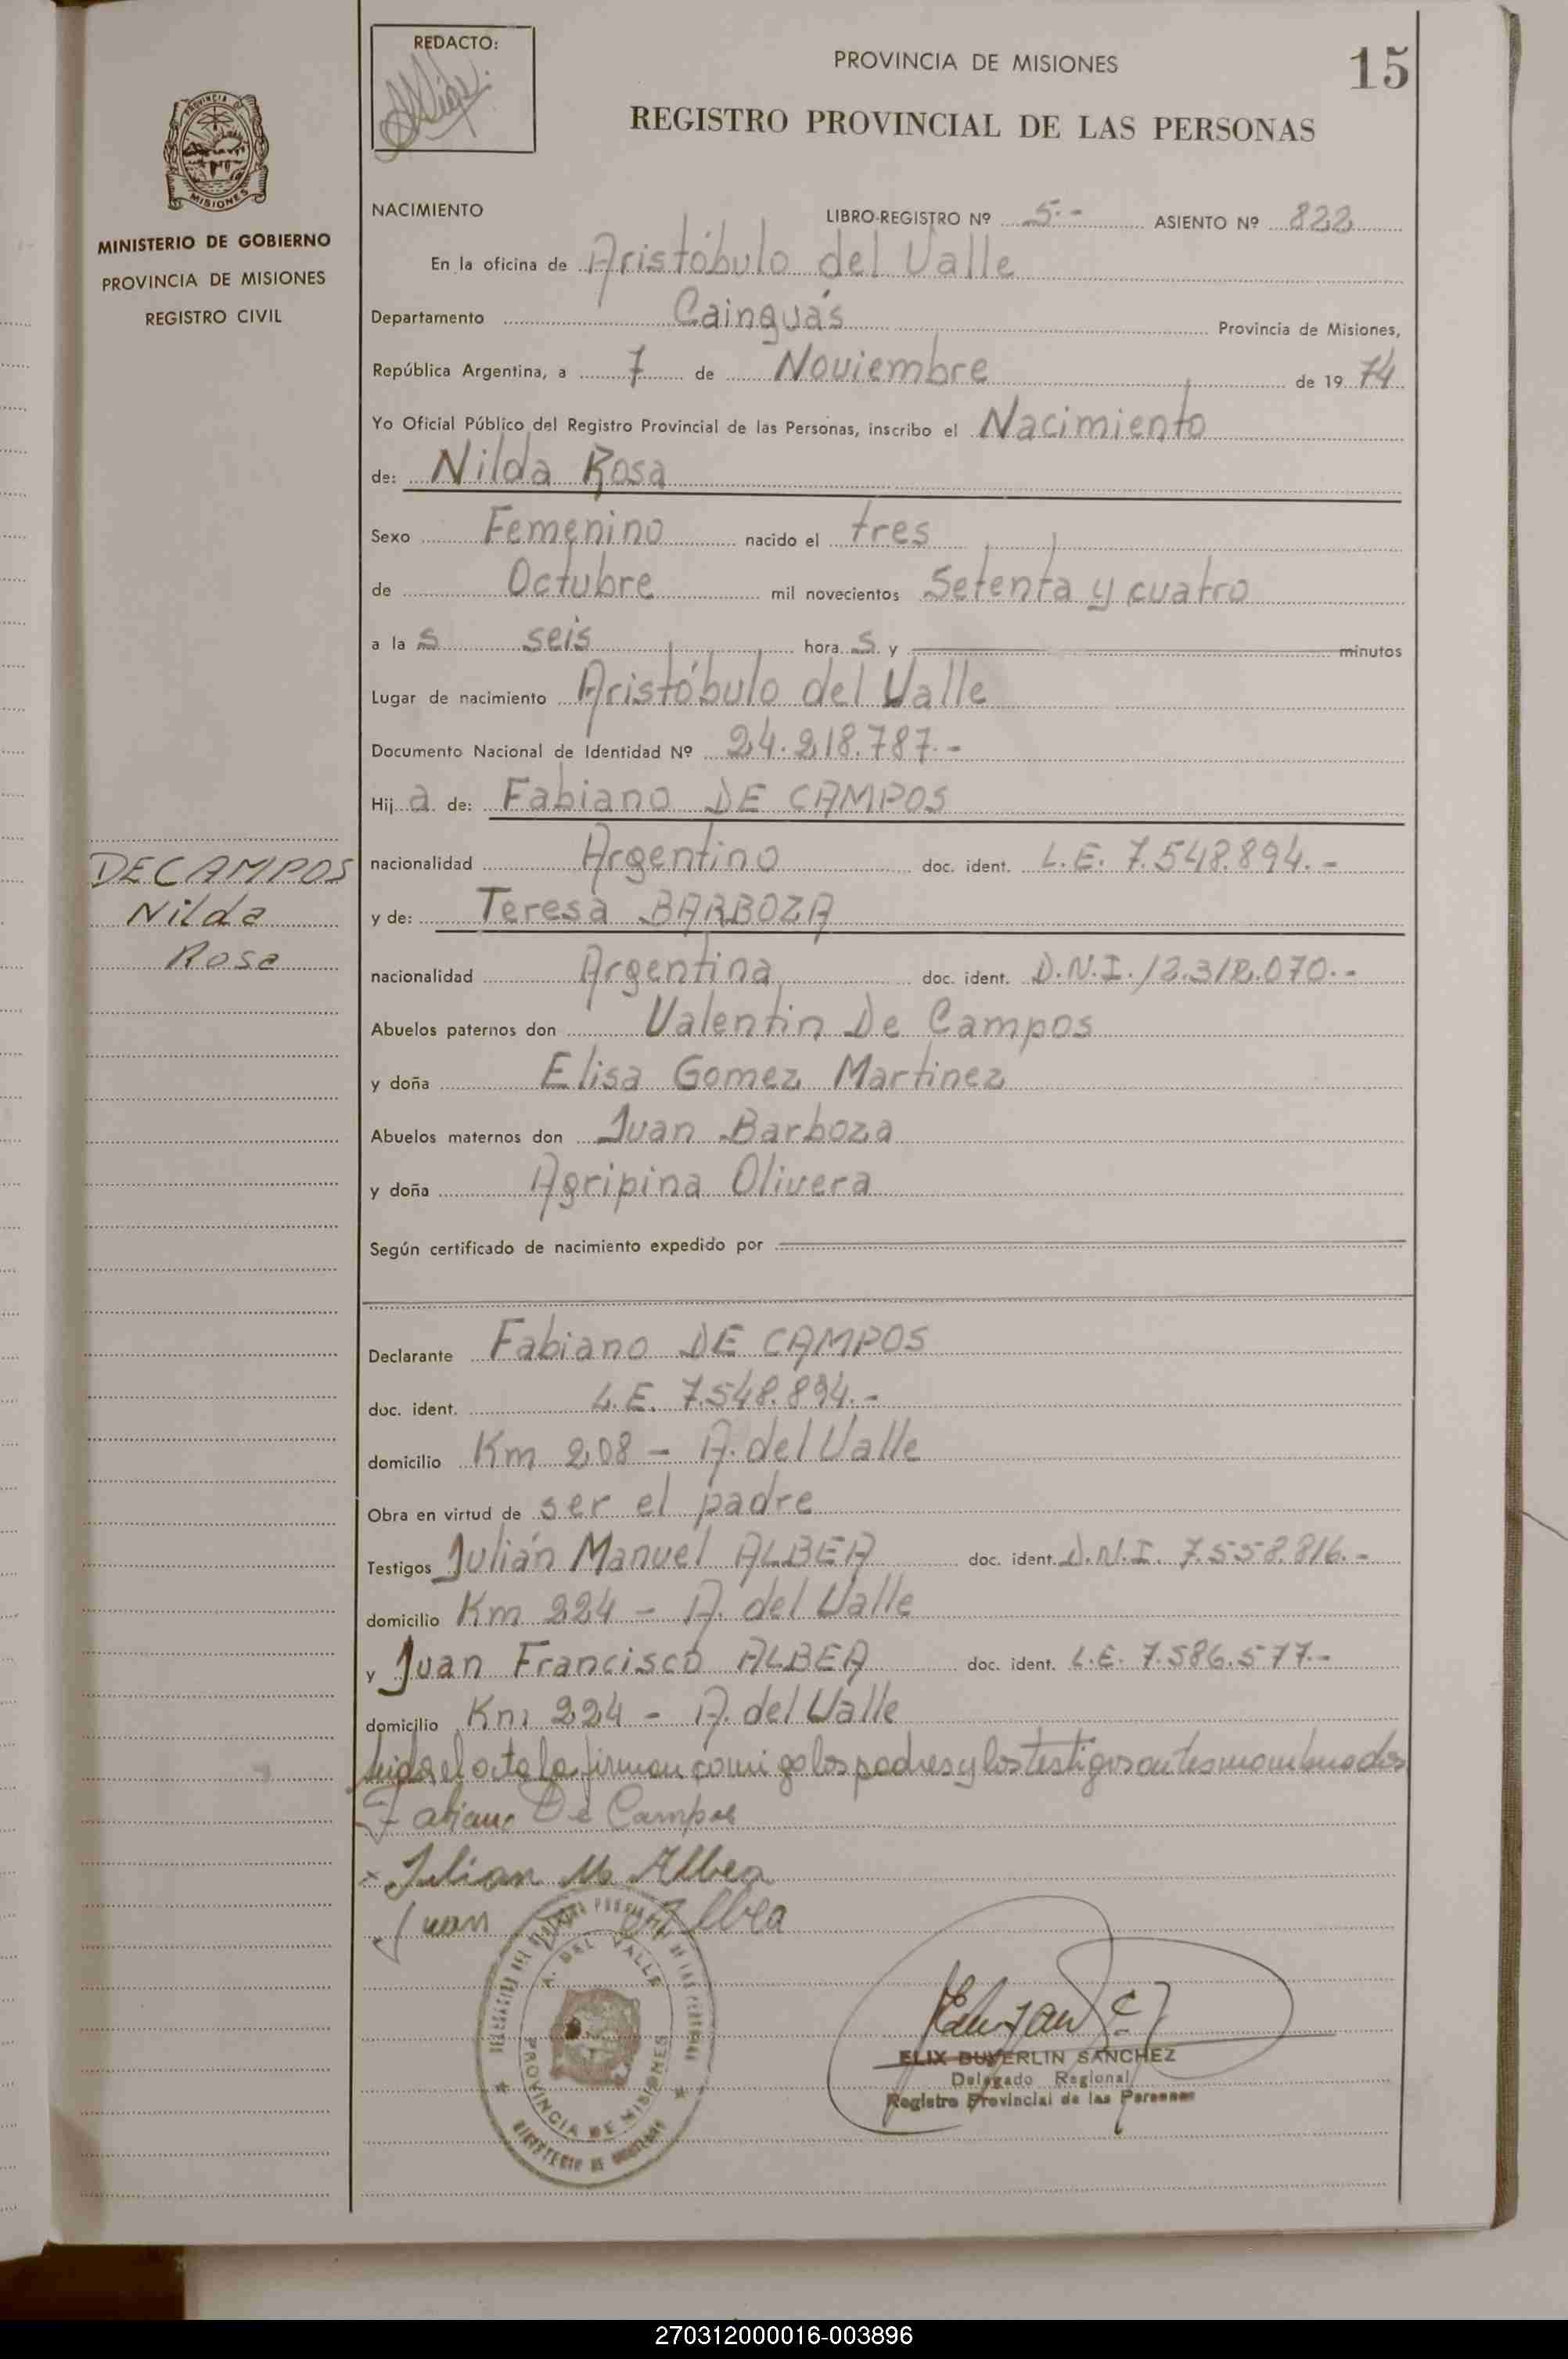 REDACTO:
PROVINCIA DE MISIONES
15
REGISTRO PROVINCIAL DE LAS PERSONAS
PROVINCIA DE
MISIONES
MINISTERIO DE GOBIERNO
PROVINCIA DE MISIONES
REGISTRO CIVIL
NACIMIENTO
LIBRO-REGISTRO Nº 5.- ASIENTO Nº 822
En la oficina de Aristóbulo del Valle
Departamento Cainguás Provincia de Misiones,
República Argentina, a 7 de Noviembre de 19 74
Yo Oficial Público del Registro Provincial de las Personas, inscribo el Nacimiento
de: Nilda Rosa
Sexo Femenino nacido el tres
de Octubre mil novecientos Setenta y cuatro
a la s seis hora s y minutos
Lugar de nacimiento Aristóbulo del Valle
Documento Nacional de Identidad Nº 24.218.787.-
Hij a de: Fabiano DE CAMPOS
nacionalidad Argentino doc. ident. L.E. 7.548.894.-
y de: Teresa BARBOZA
nacionalidad Argentina doc. ident. D.N.I. 12.312.070.-
DE CAMPOS
Nilda
Rosa
Abuelos paternos don Valentin De Campos
y doña Elisa Gomez Martinez
Abuelos maternos don Juan Barboza
y doña Agripina Olivera
Según certificado de nacimiento expedido por
Declarante Fabiano DE CAMPOS
doc. ident. L.E. 7.548.894.-
domicilio Km 208 - A. del Valle
Obra en virtud de ser el padre
Testigos Julián Manuel ALBEA doc. ident. D.N.I. 7.558.816.-
domicilio Km 224 - A. del Valle
y Juan Francisco ALBEA doc. ident. L.E. 7.586.577.-
domicilio Km 224 - A. del Valle
Leida el acta la firman comigo los padres y los testigos antes mombrados
Fabiano De Campos
Julian M Albea
Juan Albea
A. DEL VALLE
PROVINCIA DE MISIONES
MINISTERIO DE GOBIERNO
ELIX BUVERLIN SANCHEZ
Delegado Regional
Registro Provincial de las Personas
270312000016-003896